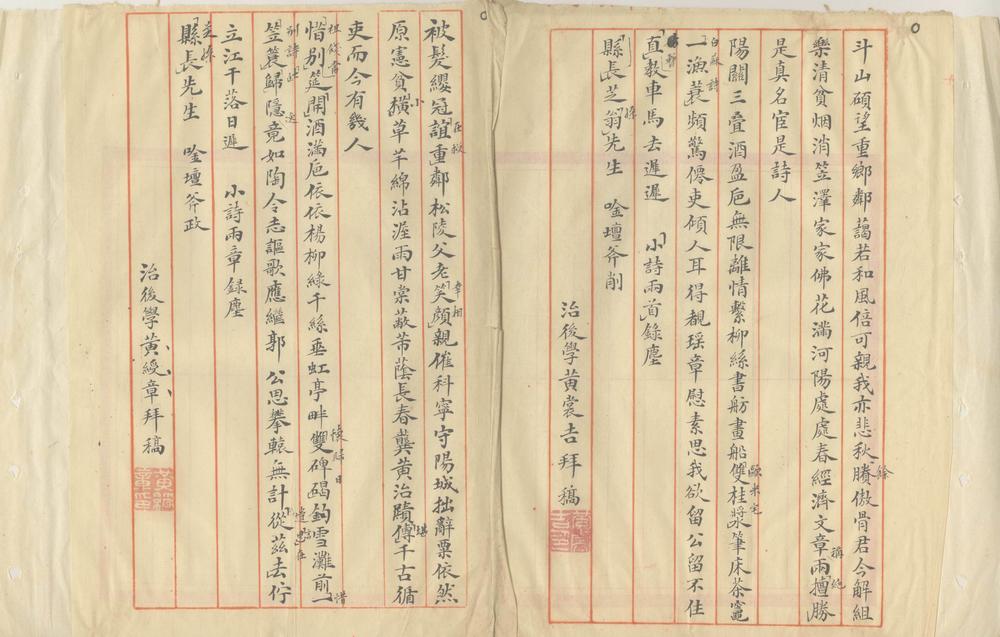 斗山碩望重鄉鄰藹若和風倍可親我亦悲秋賸傲骨君今解組
餘
樂清貧烟消笠澤家家佛花滿河陽處處春經濟文章兩擅勝
稱絕
是真名宦是詩人
陽關三疊酒盈巵無限離情繫柳絲書舫畫船雙桂槳筆床茶竈
一漁蓑頻驚僚吏傾人耳得覩瑤章慰素思我欲留公留不住
直教車馬去遲遲 小詩兩首錄塵
縣長芝翁先生 唫壇斧削
治後學黃裳吉拜稿
被髮纓冠誼重鄰松陵父老笑顏親催科寧守陽城拙辭粟依然
原憲貧橫草芊綿沾渥雨甘棠蔽芾蔭長春龔黃治蹟傳千古循
小
堪
吏而今有幾人
惜別筵開酒滿巵依依楊柳綠千絲垂虹亭畔雙碑碣釣雪灘前一
笠蓑歸隱竟如陶令志謳歌應繼郭公思攀轅無計從茲去佇
立江干落日遲 小詩兩章錄塵
縣長先生 唫壇斧政
治後學黃綬章拜稿